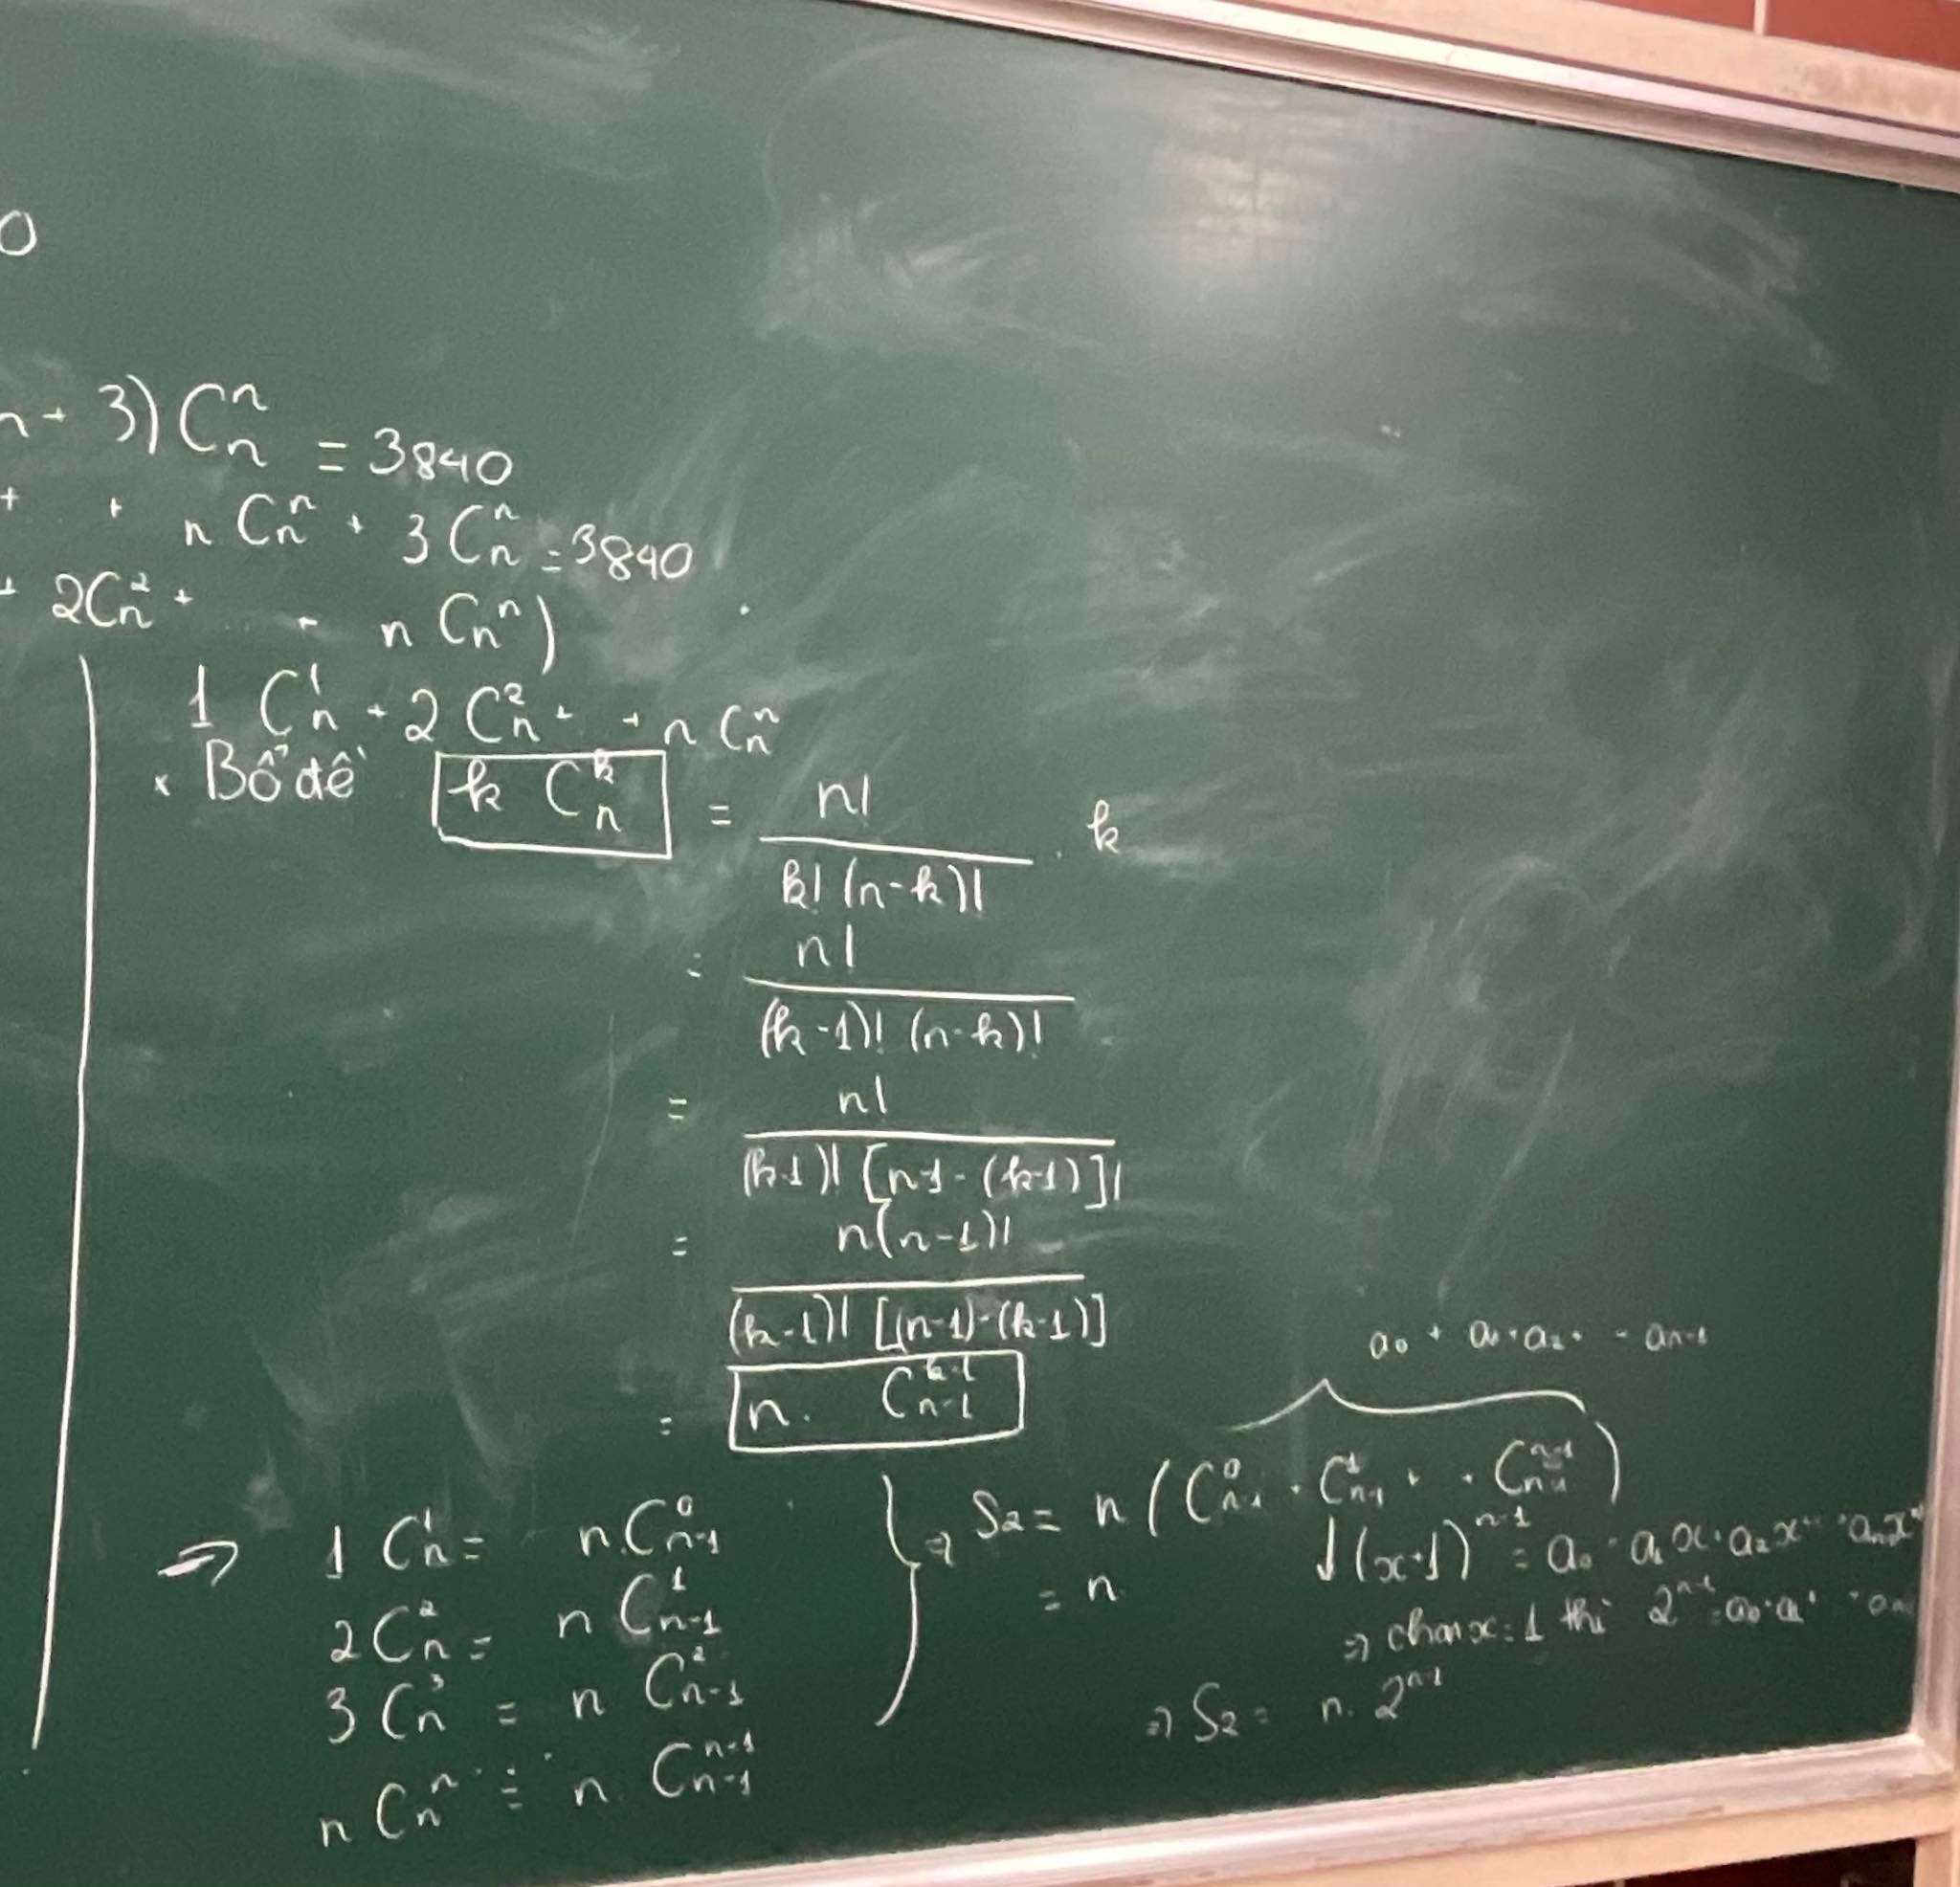 0
n + 3) Cₙⁿ = 3840
+ + n Cₙⁿ + 3 Cₙⁿ = 3840
+ 2Cₙ² + - n Cₙⁿ)
1 Cₙ¹ + 2 Cₙ² + + n Cₙⁿ
× Bổ đề k Cₙᵏ = n! / k! (n-k)! . k
= n! / (k-1)! (n-k)!
= n! / (k-1)! [n-1-(k-1)]!
= n(n-1)! / (k-1)! [(n-1)-(k-1)]
= n. Cₙ₋₁ᵏ⁻¹
a₀ + a₁ + a₂ + - aₙ₋₁
⇒ 1 Cₙ¹ = n.Cₙ₋₁⁰
2 Cₙ² = n Cₙ₋₁¹
3 Cₙ³ = n Cₙ₋₁²
n Cₙⁿ = n. Cₙ₋₁ⁿ⁻¹
⇒ S₂ = n (Cₙ₋₁⁰ + Cₙ₋₁¹ + + Cₙ₋₁ⁿ⁻¹)
= n.
↓ (x+1)ⁿ⁻¹ = a₀ + a₁x + a₂x
⇒ x = 1 thì 2ⁿ⁻¹ = a₀ + a₁ +
⇒ S₂ = n. 2ⁿ⁻¹